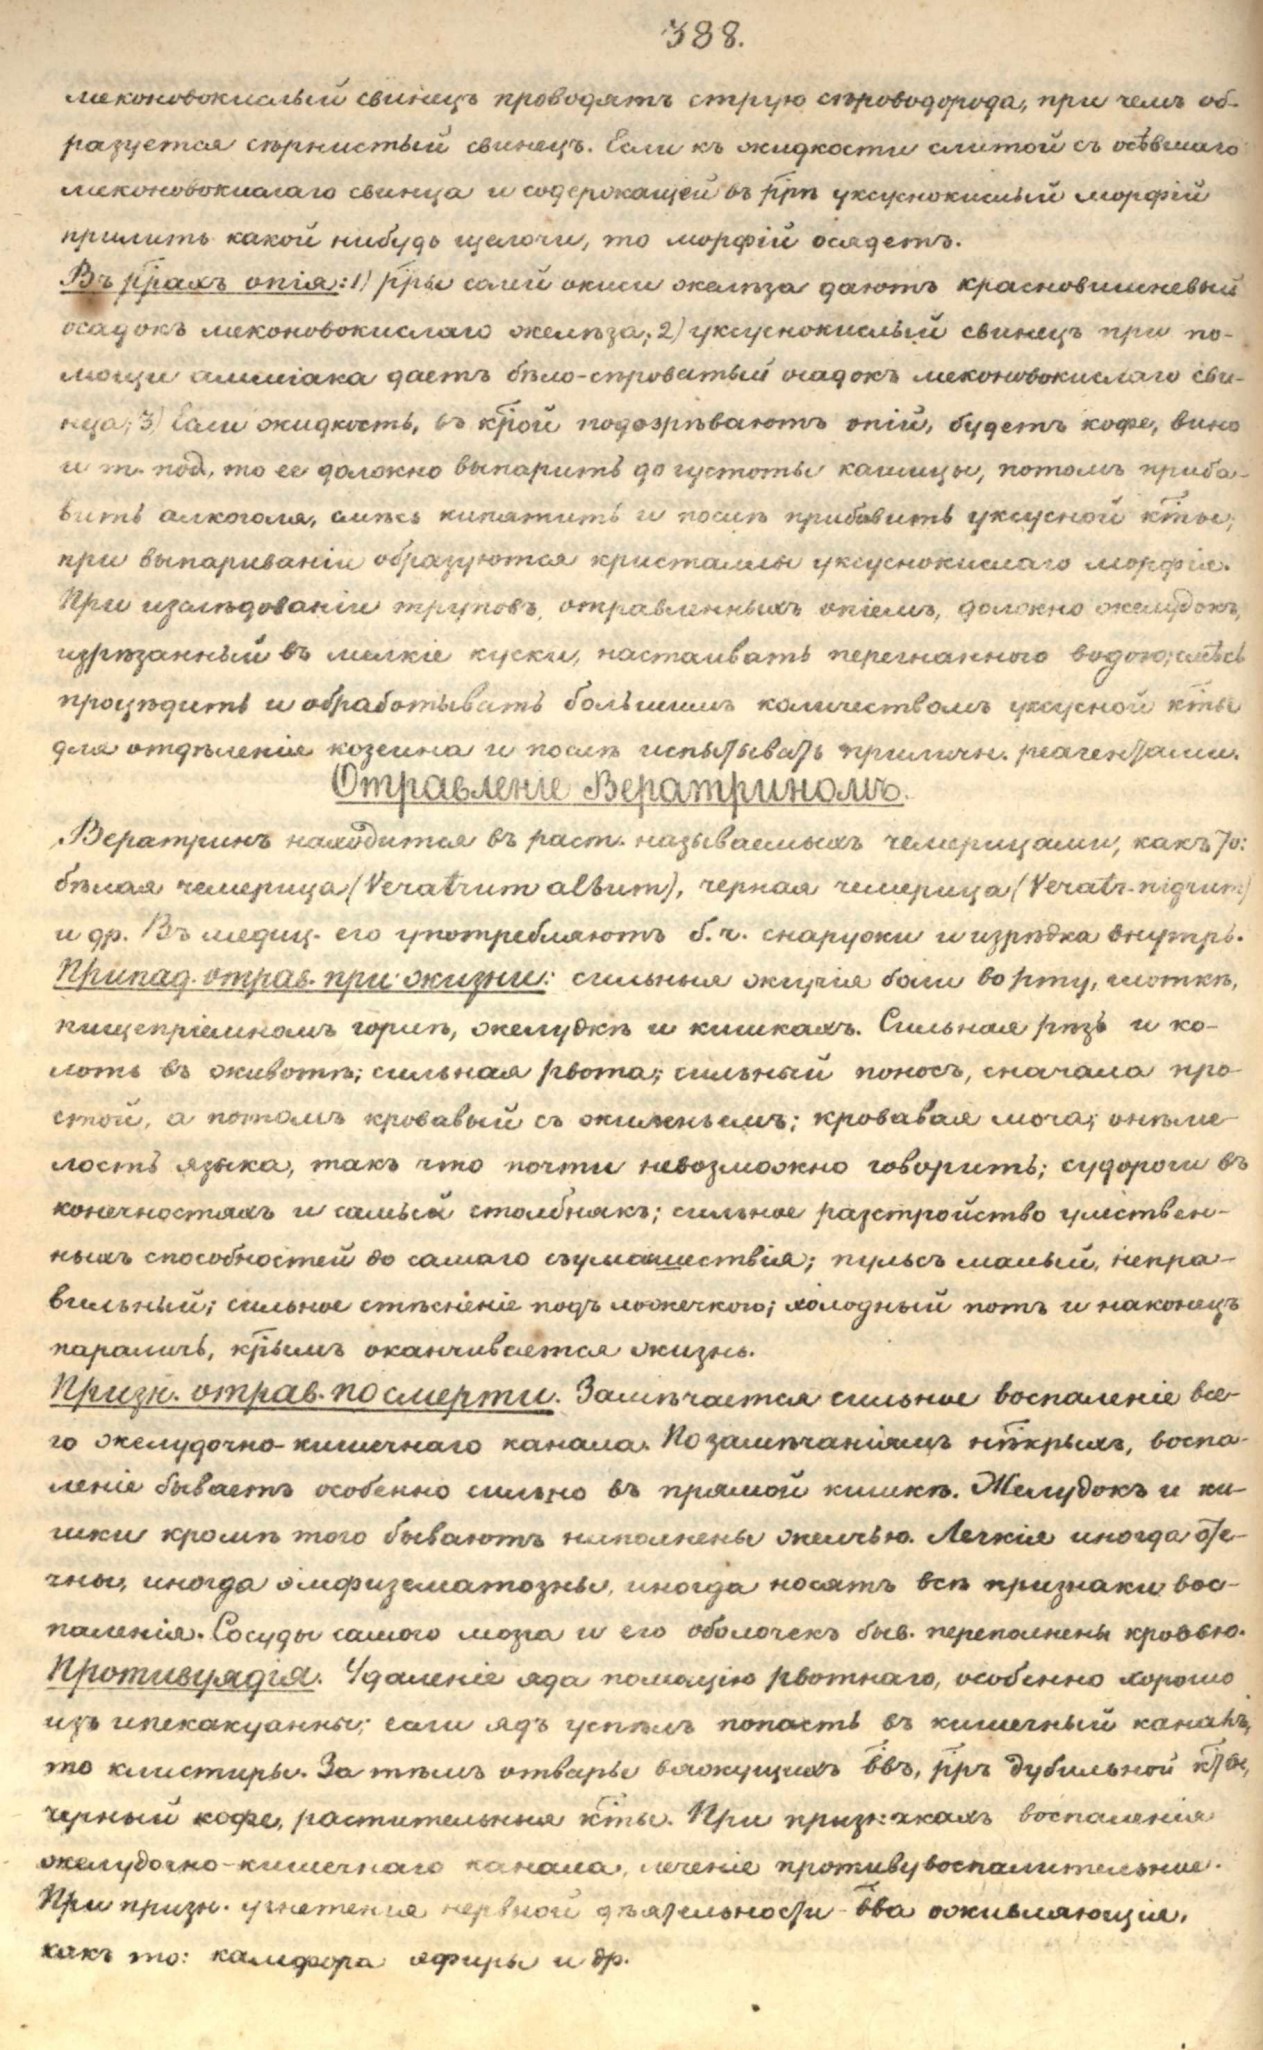 388.
меконовокислый свинецъ проводятъ струю сѣроводорода, при чемъ об-
разуется сѣрнистый свинецъ. Если къ жидкости слитой съ осѣвшаго
меконовокислаго свинца и содержащей въ р̅р̅ѣ уксуснокислый морфій
прилить какой нибудь щелочи, то морфій осядетъ.
Въ р̅р̅ахъ опія: 1) р̅р̅ы солей окиси желѣза даютъ красновишневый
осадокъ меконовокислаго желѣза; 2) уксуснокислый свинецъ при по-
мощи амміака даетъ бѣло-сѣроватый осадокъ меконовокислаго сви-
нца; 3) Если жидкость, въ к̅р̅ой подозрѣваютъ опій, будетъ кофе, вино
и т. под, то ее должно выпарить до густоты кашицы, потомъ приба-
вить алкоголя, смѣсь кипятить и послѣ прибавить уксусной к̅т̅ы;
при выпариваніи образуются кристаллы уксуснокислаго морфія.
При изслѣдованіи труповъ, отравленныхъ опіемъ, должно желудокъ,
изрѣзанный въ мелкіе куски, настаивать перегнанною водою; смѣсь
процѣдить и обработывать большимъ количествомъ уксусной к̅т̅ы
для отдѣленія козеина и послѣ испытывать приличн. реагентами.
Отравленіе Вератриномъ.
Вератринъ находится въ раст. называемыхъ чемерицами, какъ то:
бѣлая чемерица (Veratrum album), черная чемерица (Veratr. nigrum)
и др. Въ медиц. его употребляютъ б. ч. снаружи и изрѣдка внутрь.
Припад. отрав. при жизни: сильныя жгучія боли во рту, глоткѣ,
пищепріемномъ горлѣ, желудкѣ и кишкахъ. Сильная рѣзь и ко-
лоть въ животѣ; сильная рвота; сильный поносъ, сначала про-
стой, а потомъ кровавый съ жиленьемъ; кровавая моча; онѣме-
лость языка, такъ что почти невозможно говорить; судороги въ
конечностяхъ и самый столбнякъ; сильное разстройство умствен-
ныхъ способностей до самаго съумашествія; пульсъ малый, непра-
вильный; сильное стѣсненіе подъ ложечкою; холодный потъ и наконецъ
параличъ, к̅р̅ымъ оканчивается жизнь.
Призн. отрав. по смерти. Замѣчается сильное воспаленіе все-
го желудочно-кишечнаго канала. По замѣчаніямъ нѣ̅к̅рыхъ, воспа-
леніе бываетъ особенно сильно въ прямой кишкѣ. Желудокъ и ки-
шки кромѣ того бываютъ наполнены желчью. Легкія иногда оте-
чны, иногда эмфизематозны, иногда носятъ всѣ признаки вос-
паленія. Сосуды самого мозга и его оболочекъ быв. переполнены кровью.
Противуядія. Удаленіе яда помощію рвотнаго, особенно хорошо
изъ ипекакуанны; если ядъ успѣлъ попасть въ кишечный каналъ,
то клистиры. За тѣмъ отвары вяжущихъ в̅в̅ъ, р̅р̅ъ дубильной к̅т̅ы,
черный кофе, растительныя к̅т̅ы. При признакахъ воспаленія
желудочно-кишечнаго канала, леченіе противувоспалительное.
При призн. угнетенія нервной дѣятельности - в̅в̅а оживляющія,
какъ то: камфора эфиры и др.